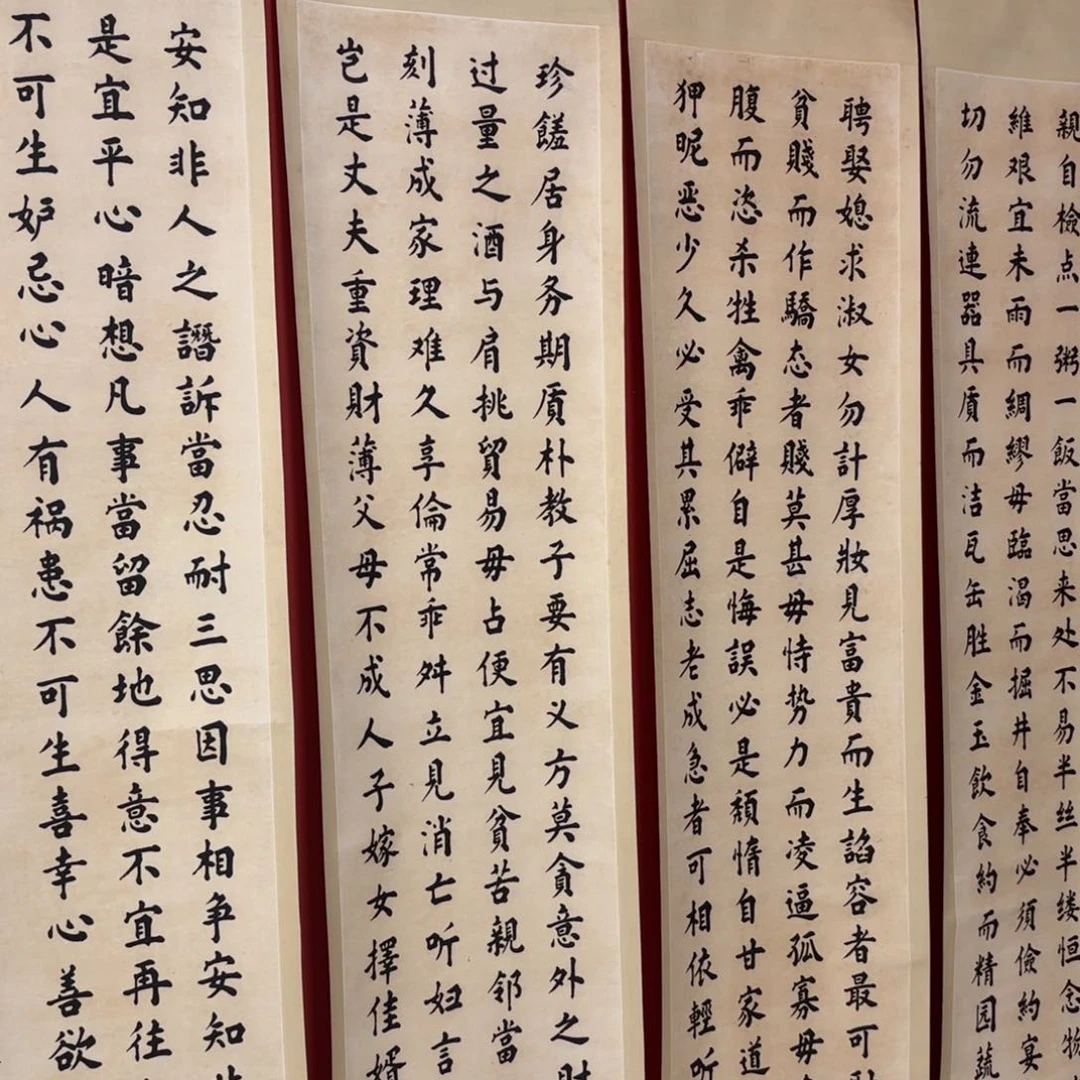 親自檢点一粥一飯當思来处不易半丝半缕恒念物
維艰宜未雨而綢繆毋臨渴而掘井自奉必須儉約宴
切勿流連器具质而洁瓦缶胜金玉飲食約而精园蔬
聘娶媳求淑女勿計厚妝見富貴而生諂容者最可
貧賤而作驕态者賤莫甚毋恃势力而凌逼孤寡毋
腹而恣杀牲禽乖僻自是悔誤必是頹惰自甘家道
狎昵恶少久必受其累屈志老成急者可相依輕听
珍饈居身务期质朴教子要有义方莫貪意外之財
过量之酒与肩挑貿易毋占便宜見貧苦親邻當
刻薄成家理难久享倫常乖舛立見消亡听妇言
岂是丈夫重資財薄父母不成人子嫁女擇佳婿
安知非人之譖訴當忍耐三思因事相争安知非
是宜平心暗想凡事當留餘地得意不宜再往
不可生妒忌心人有祸患不可生喜幸心善欲